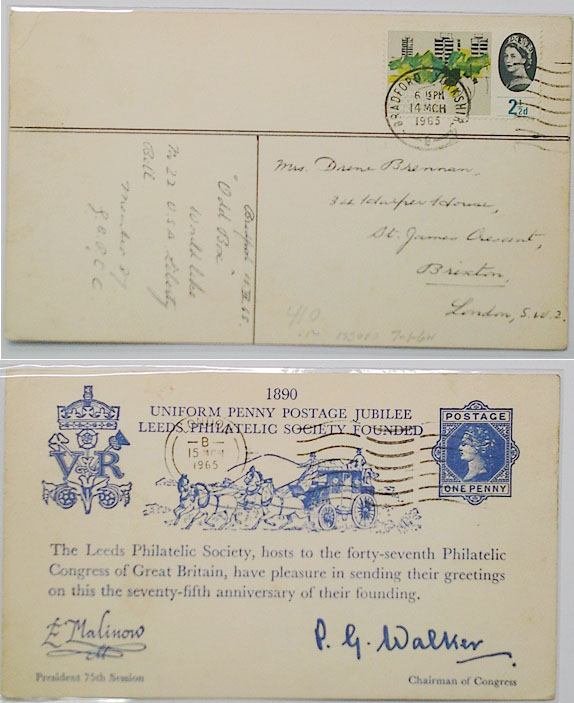 2½d
BRADFORD YORKSHIRE
6 15PM
14 MCH
1965
Mrs. Drene Brennan,
34 Harper House,
St. James Crescent,
Brixton,
London, S.W.2.
"Odd Box"
Would like
N 22 USA Liberty
Bell
Member 87.
410
1890
UNIFORM PENNY POSTAGE JUBILEE
LEEDS PHILATELIC SOCIETY FOUNDED
V R
B
15 MCH
1965
POSTAGE
ONE PENNY
The Leeds Philatelic Society, hosts to the forty-seventh Philatelic
Congress of Great Britain, have pleasure in sending their greetings
on this the seventy-fifth anniversary of their founding.
E Malinow
P. G. Walker
President 75th Session
Chairman of Congress